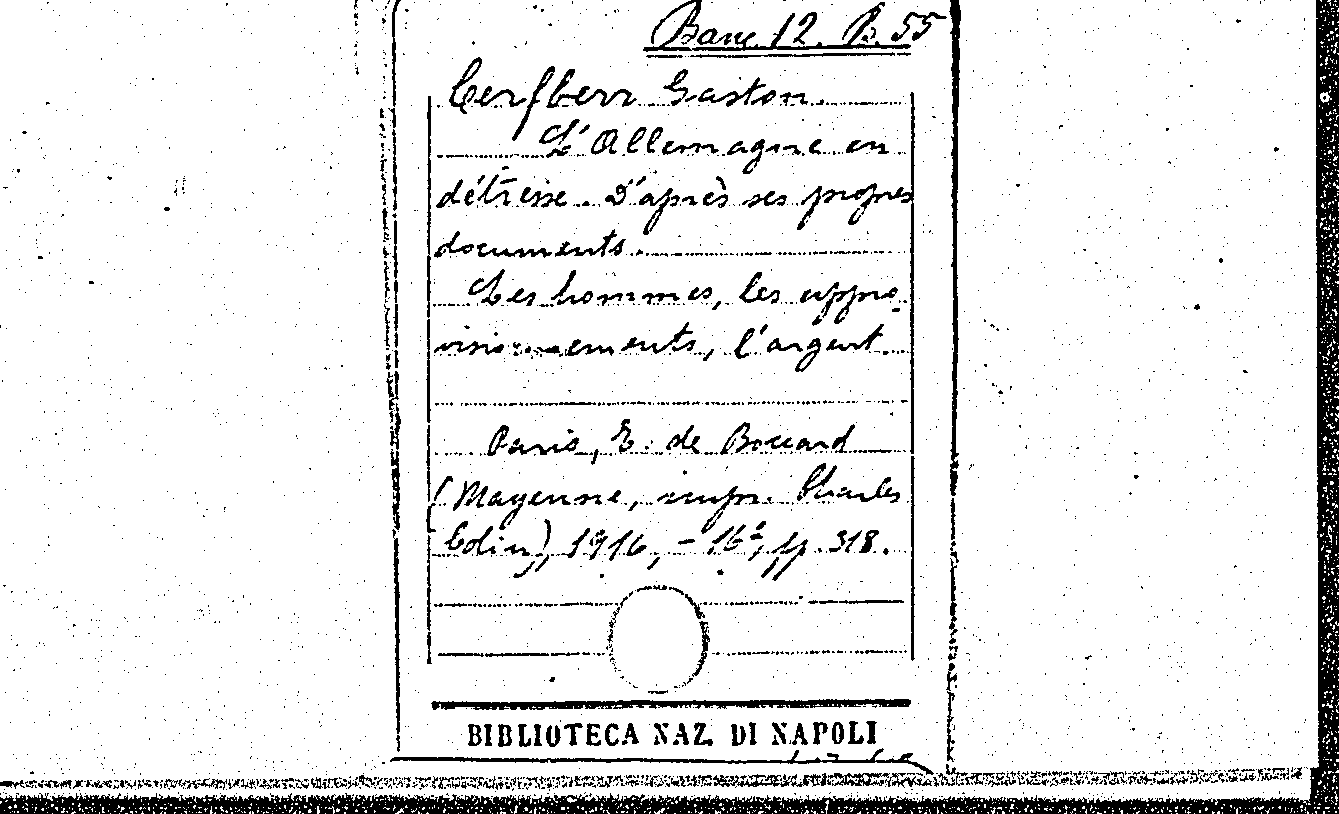 Banc. 12. B. 55
Cerfberr Gaston.
L'Allemagne en
détresse. D'après ses propres
documents.
Les hommes, les appro-
visionnements, l'argent
Paris, E. de Boccard
(Mayenne, impr. Charles
Colin), 1916, - 16°, pp. 318.
BIBLIOTECA NAZ. DI NAPOLI